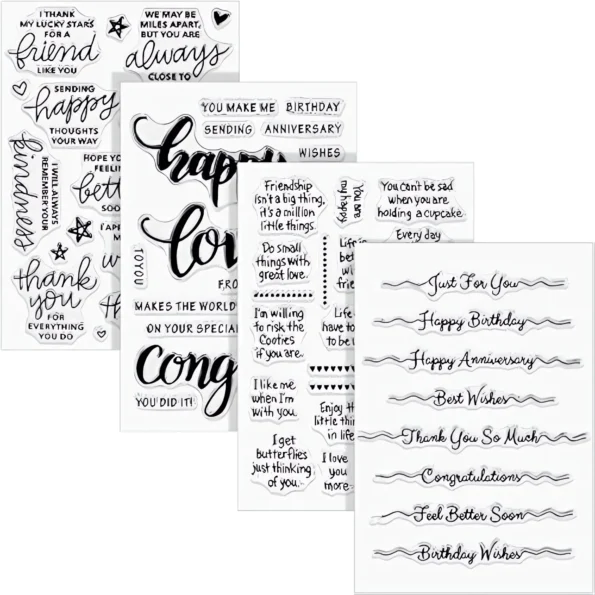 I THANK
MY LUCKY STARS
FOR A
friend
LIKE YOU
WE MAY BE
MILES APART,
BUT YOU ARE
always
CLOSE TO
SENDING
happy
THOUGHTS
YOUR WAY
kindness
I WILL ALWAYS
REMEMBER YOUR
HOPE YO
FEELIN
bett
SOO
thank
you
FOR
EVERYTHING
YOU DO
YOU MAKE ME
BIRTHDAY
SENDING
ANNIVERSARY
happy
WISHES
lov
TO YOU
FRO
MAKES THE WORLD
ON YOUR SPECIAL
Cong
YOU DID IT!
Friendship
isn't a big thing,
it's a million
little things.
You are
my happy
You can't be sad
when you are
holding a cupcake.
Every day
Do small
things with
great love.
Life is
bett
wi
frie
I'm willing
to risk the
Cooties
if you are.
Life
have to
to be
I like me
when I'm
with you.
Enjoy th
little thin
in life
I get
butterflies
just thinking
of you.
I love
you
more
Just For You
Happy Birthday
Happy Anniversary
Best Wishes
Thank You So Much
Congratulations
Feel Better Soon
Birthday Wishes